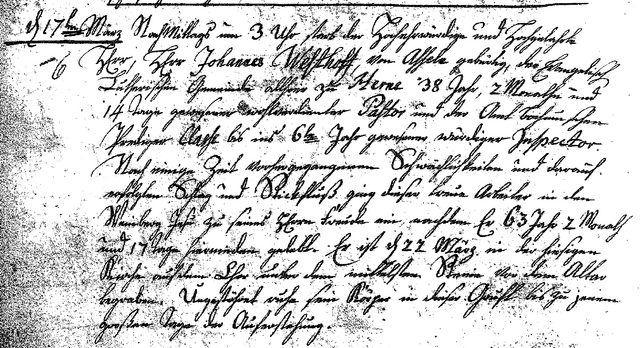 d 17ten März Nachmittags um 3 Uhr starb der Hochehrwürdige und Hochgelahrte
6 Herr, Herr Johannes Westhoff von Asseln gebürtig, der Evangelisch
Lutherischen Gemeinde allhier zu Herne 38 Jahr, 2 Monathe und
14 Tage gewesener wohlverdienter Pastor und der Amt Bochumschen
Prediger Classe bis ins 6te Jahr gewesener würdiger Inspector
Nach einige Zeit vorhergegangenen Schwächlichkeiten und darauf
erfolgten Schlag und Stickfluß ging dieser treue Arbeiter in dem
Weinberg Jesu zu seines Herrn Freude ein nachdem Er 63 Jahr 2 Monath
und 17 Tage hienieden gelebt. Er ist d 22 März in der hiesigen
Kirche auf dem Chor unter dem mittelsten Steine vor dem Altar
begraben. Ungestöhret ruhe sein Körper in dieser Gruft bis zu jenem
großen Tage der Auferstehung.